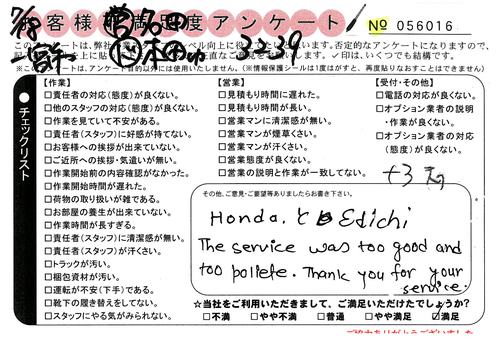 お客様満足度アンケート
№ 056016
7/18
3239
※このアンケートは、アンケート目的以外には使用いたしません。(※情報保護シールは1度はがすと、再度貼りなおすことはできません)
チェックリスト
【作業】
□責任者の対応(態度)が良くない。
□他のスタッフの対応(態度)が良くない。
□作業を見ていて不安がある。
□責任者(スタッフ)に好感が持てない。
□お客様への挨拶が出来ていない。
□ご近所への挨拶・気遣いが無い。
□作業開始前の内容確認がなかった。
□作業開始時間が遅れた。
□荷物の取り扱いが雑である。
□お部屋の養生が出来ていない。
□作業時間が長すぎる。
□責任者(スタッフ)に清潔感が無い。
□責任者(スタッフ)が汗くさい。
□トラックが汚い。
□梱包資材が汚い。
□運転が不安(下手)である。
□靴下の履き替えをしてない。
□スタッフにやる気がみられない。
【営業】
□見積もり時間に遅れた。
□見積もり時間が長い。
□営業マンに清潔感が無い。
□営業マンが煙草くさい。
□営業マンが汗くさい。
□営業態度が良くない。
□営業の説明と作業が一致してない。
【受付・その他】
□電話の対応が良くない。
□オプション業者の説明
・作業が良くない。
□オプション業者の対応
(態度)が良くない。
その他、ご意見・ご要望等ありましたらお書き下さい。
Honda. と Edichi
The service was too good and
too poliete. Thank you for your
service.
☆当社をご利用いただきまして、ご満足いただけたでしょうか?
□不満 □やや不満 □普通 □やや満足 ☑満足
ご協力ありがとうございました